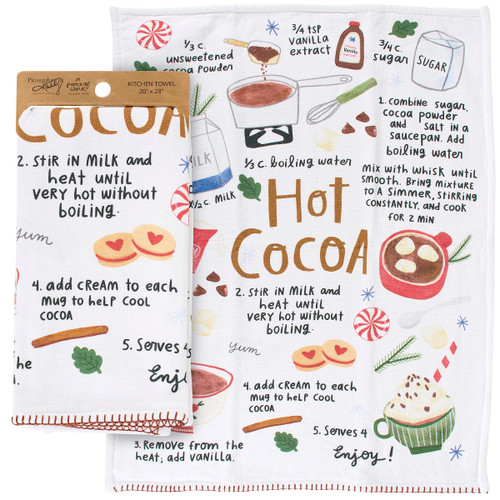 KITCHEN TOWEL
20" x 28"
COCOA
2. STIR IN MILK and
HEAT UNTIL
VERY HOT WITHOUT
BOILING.
Yum
4. ADD CREAM TO EACH
MUG TO HELP COOL
COCOA
the
the
5. SERVES 4
Enjoy
1/3 C.
UNSWEETENED
COCOA POWDER
3/4 TSP
VANILLA
EXTRACT
Vanilla
3/4 C.
SUGAR
SUGAR
1. COMBINE SUGAR,
COCOA POWDER
and SALT IN A
SAUCEPAN. ADD
BOILING WATER
1/3 C. BOILING WATER
1/2 C. MILK
MIX WITH WHISK UNTIL
SMOOTH. BRING MIXTURE
TO A SIMMER, STIRRING
CONSTANTLY, AND COOK
FOR 2 MIN
HOT
COCOA
2. STIR IN MILK and
HEAT UNTIL
VERY HOT WITHOUT
BOILING.
Yum
4. ADD CREAM TO EACH
MUG TO HELP COOL
COCOA
3. REMOVE FROM THE
HEAT; ADD VANILLA.
5. SERVES 4
Enjoy!